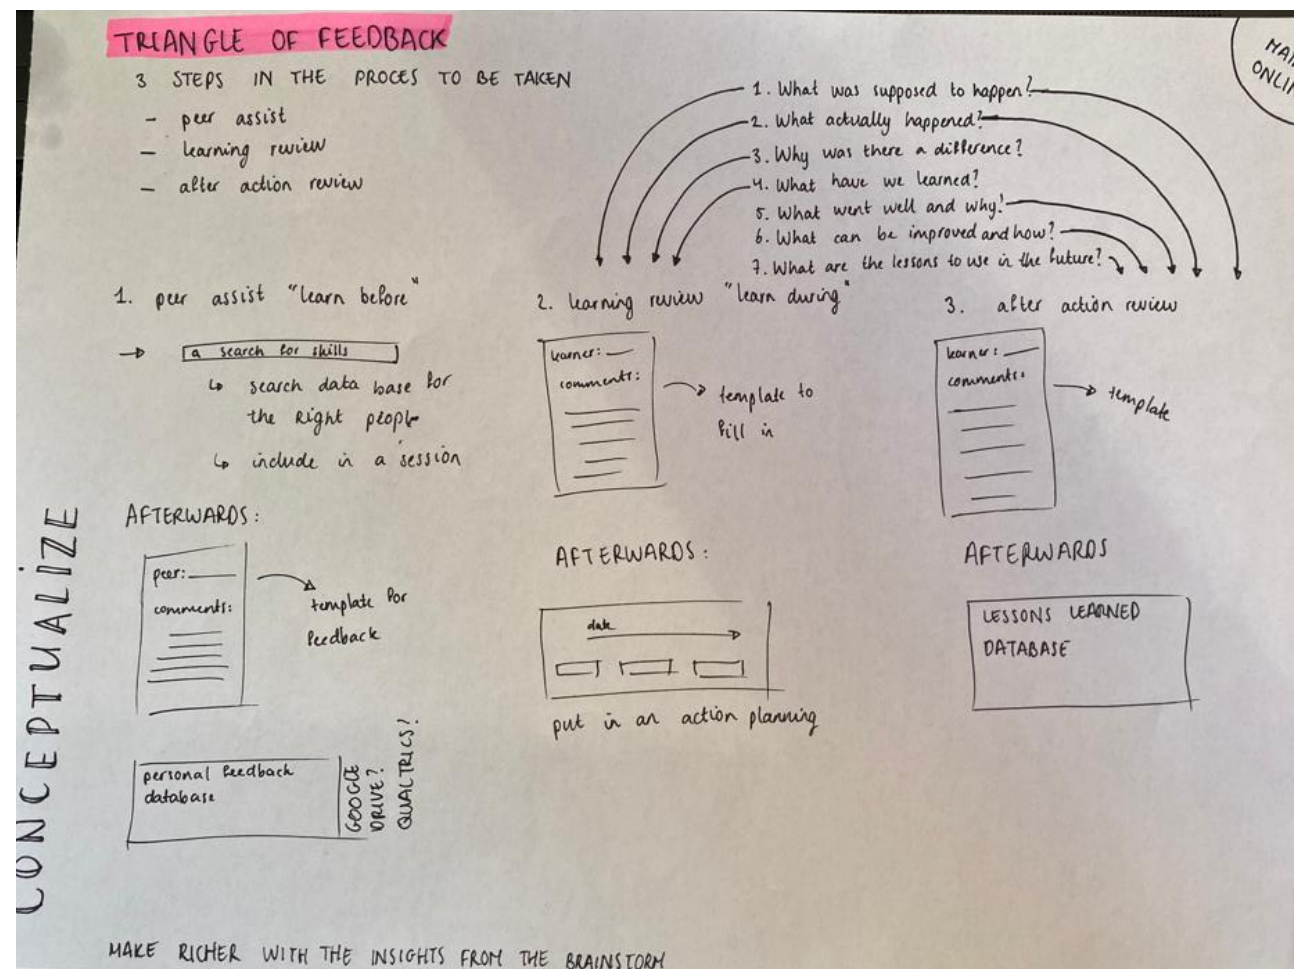 TRIANGLE OF FEEDBACK
3 STEPS IN THE PROCES TO BE TAKEN
- peer assist
- learning review
- after action review
1. What was supposed to happen?
2. What actually happened?
3. Why was there a difference?
4. What have we learned?
5. What went well and why?
6. What can be improved and how?
7. What are the lessons to use in the future?
1. peer assist "learn before"
a search for skills
search data base for
the right people
include in a session
AFTERWARDS:
peer:
comments:
template for
feedback
personal feedback
database
GOOGLE
DRIVE?
QUALTRICS?
2. learning review "learn during"
learner:
comments:
template to
fill in
AFTERWARDS:
date
put in an action planning
3. after action review
learner:
comments:
template
AFTERWARDS
LESSONS LEARNED
DATABASE
CONCEPTUALIZE
MAKE RICHER WITH THE INSIGHTS FROM THE BRAINSTORM